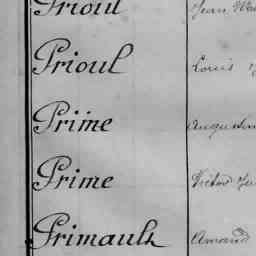 Prioul Jean
Prioul Louis
Prime
Prime Victor
Primault Amand